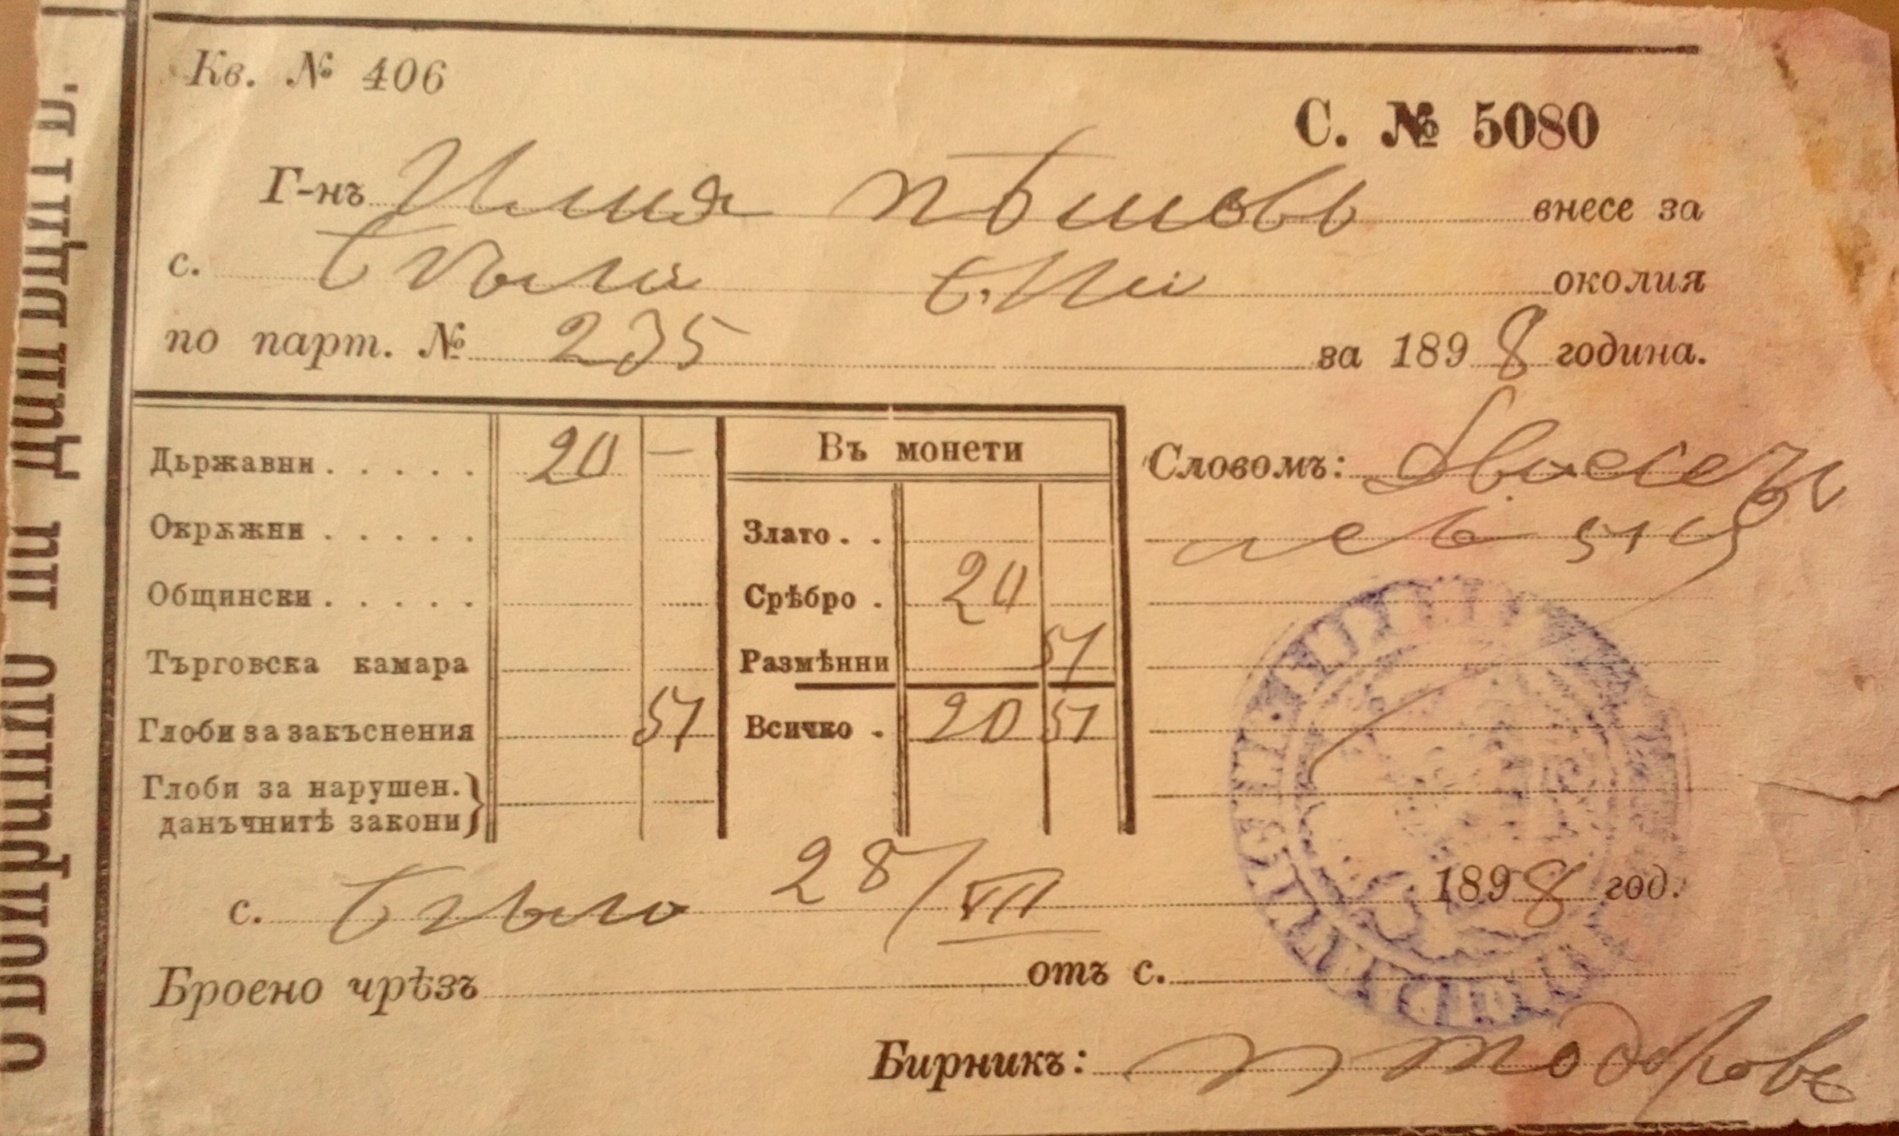 Кв. № 406
С. № 5080
Г-нъ Илия Пѣшовъ внесе за
с. околия
по парт. № 235 за 1898 година.
Държавни . . . . . 20 —
Окрѫжни . . . . .
Общински . . . . .
Търговска камара
Глоби за закъснения 51
Глоби за нарушен.
данъчнитѣ закони
Въ монети
Злато . .
Срѣбро . 20
Размѣнни 51
Всичко . 20 51
Словомъ: Двадесетъ
лева 51 ст
с. 28/VII 1898 год.
Броено чрѣзъ отъ с.
Бирникъ: Тодоровъ